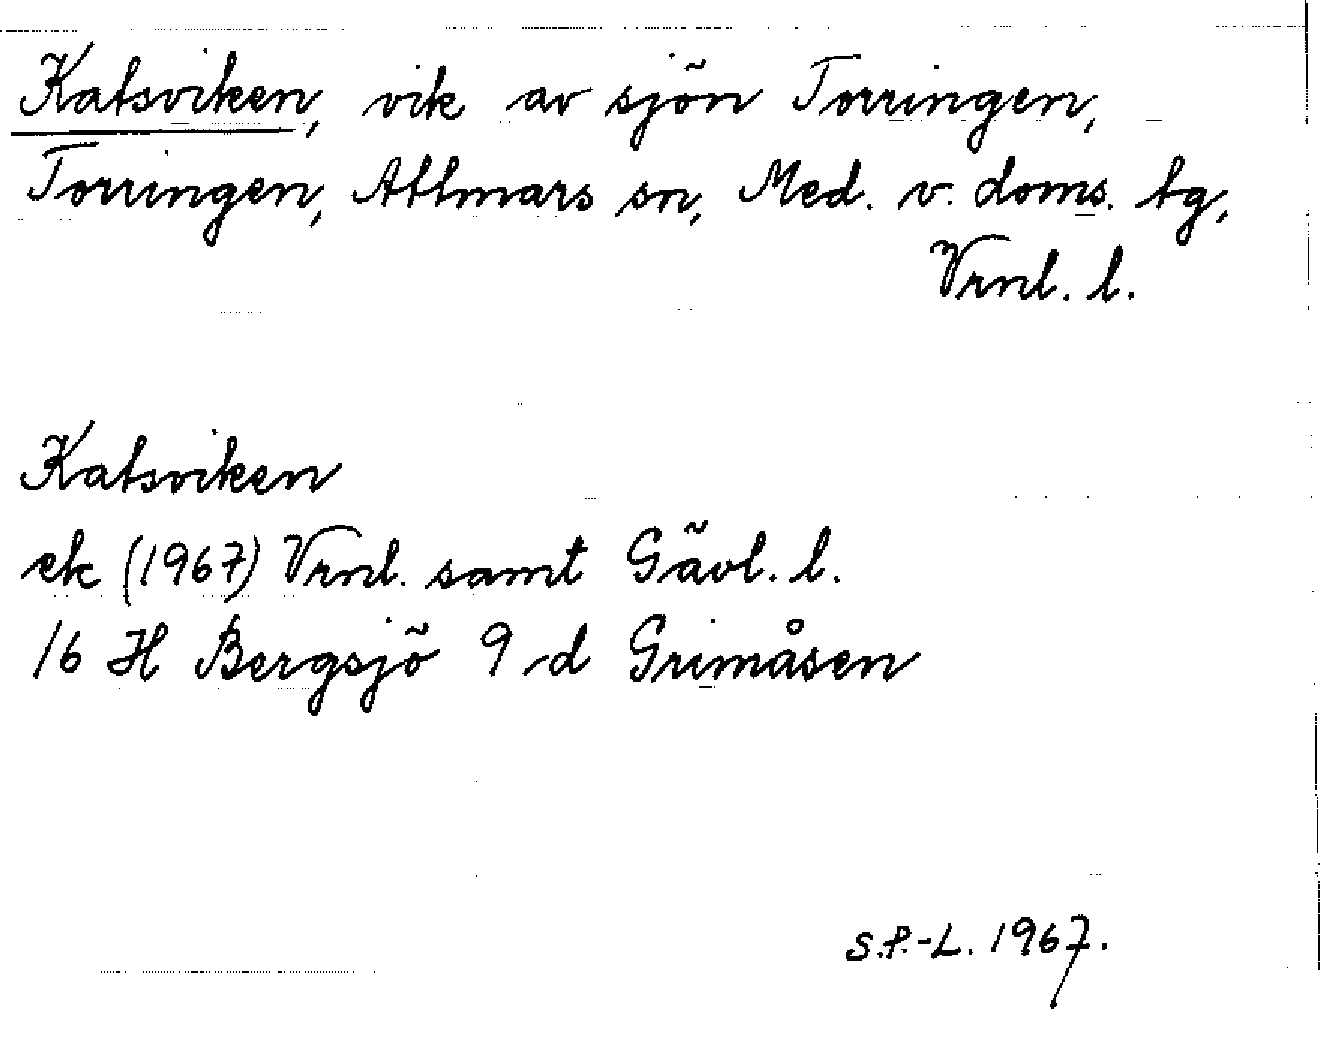 Katsviken, vik av sjön Torringen,
Torringen, Attmars sn, Med. v. doms. tg,
Vrnl. l.
Katsviken
ek (1967) Vrnl. samt Gävl. l.
16 H Bergsjö 9 d Grimåsen
S.P.-L. 1967.